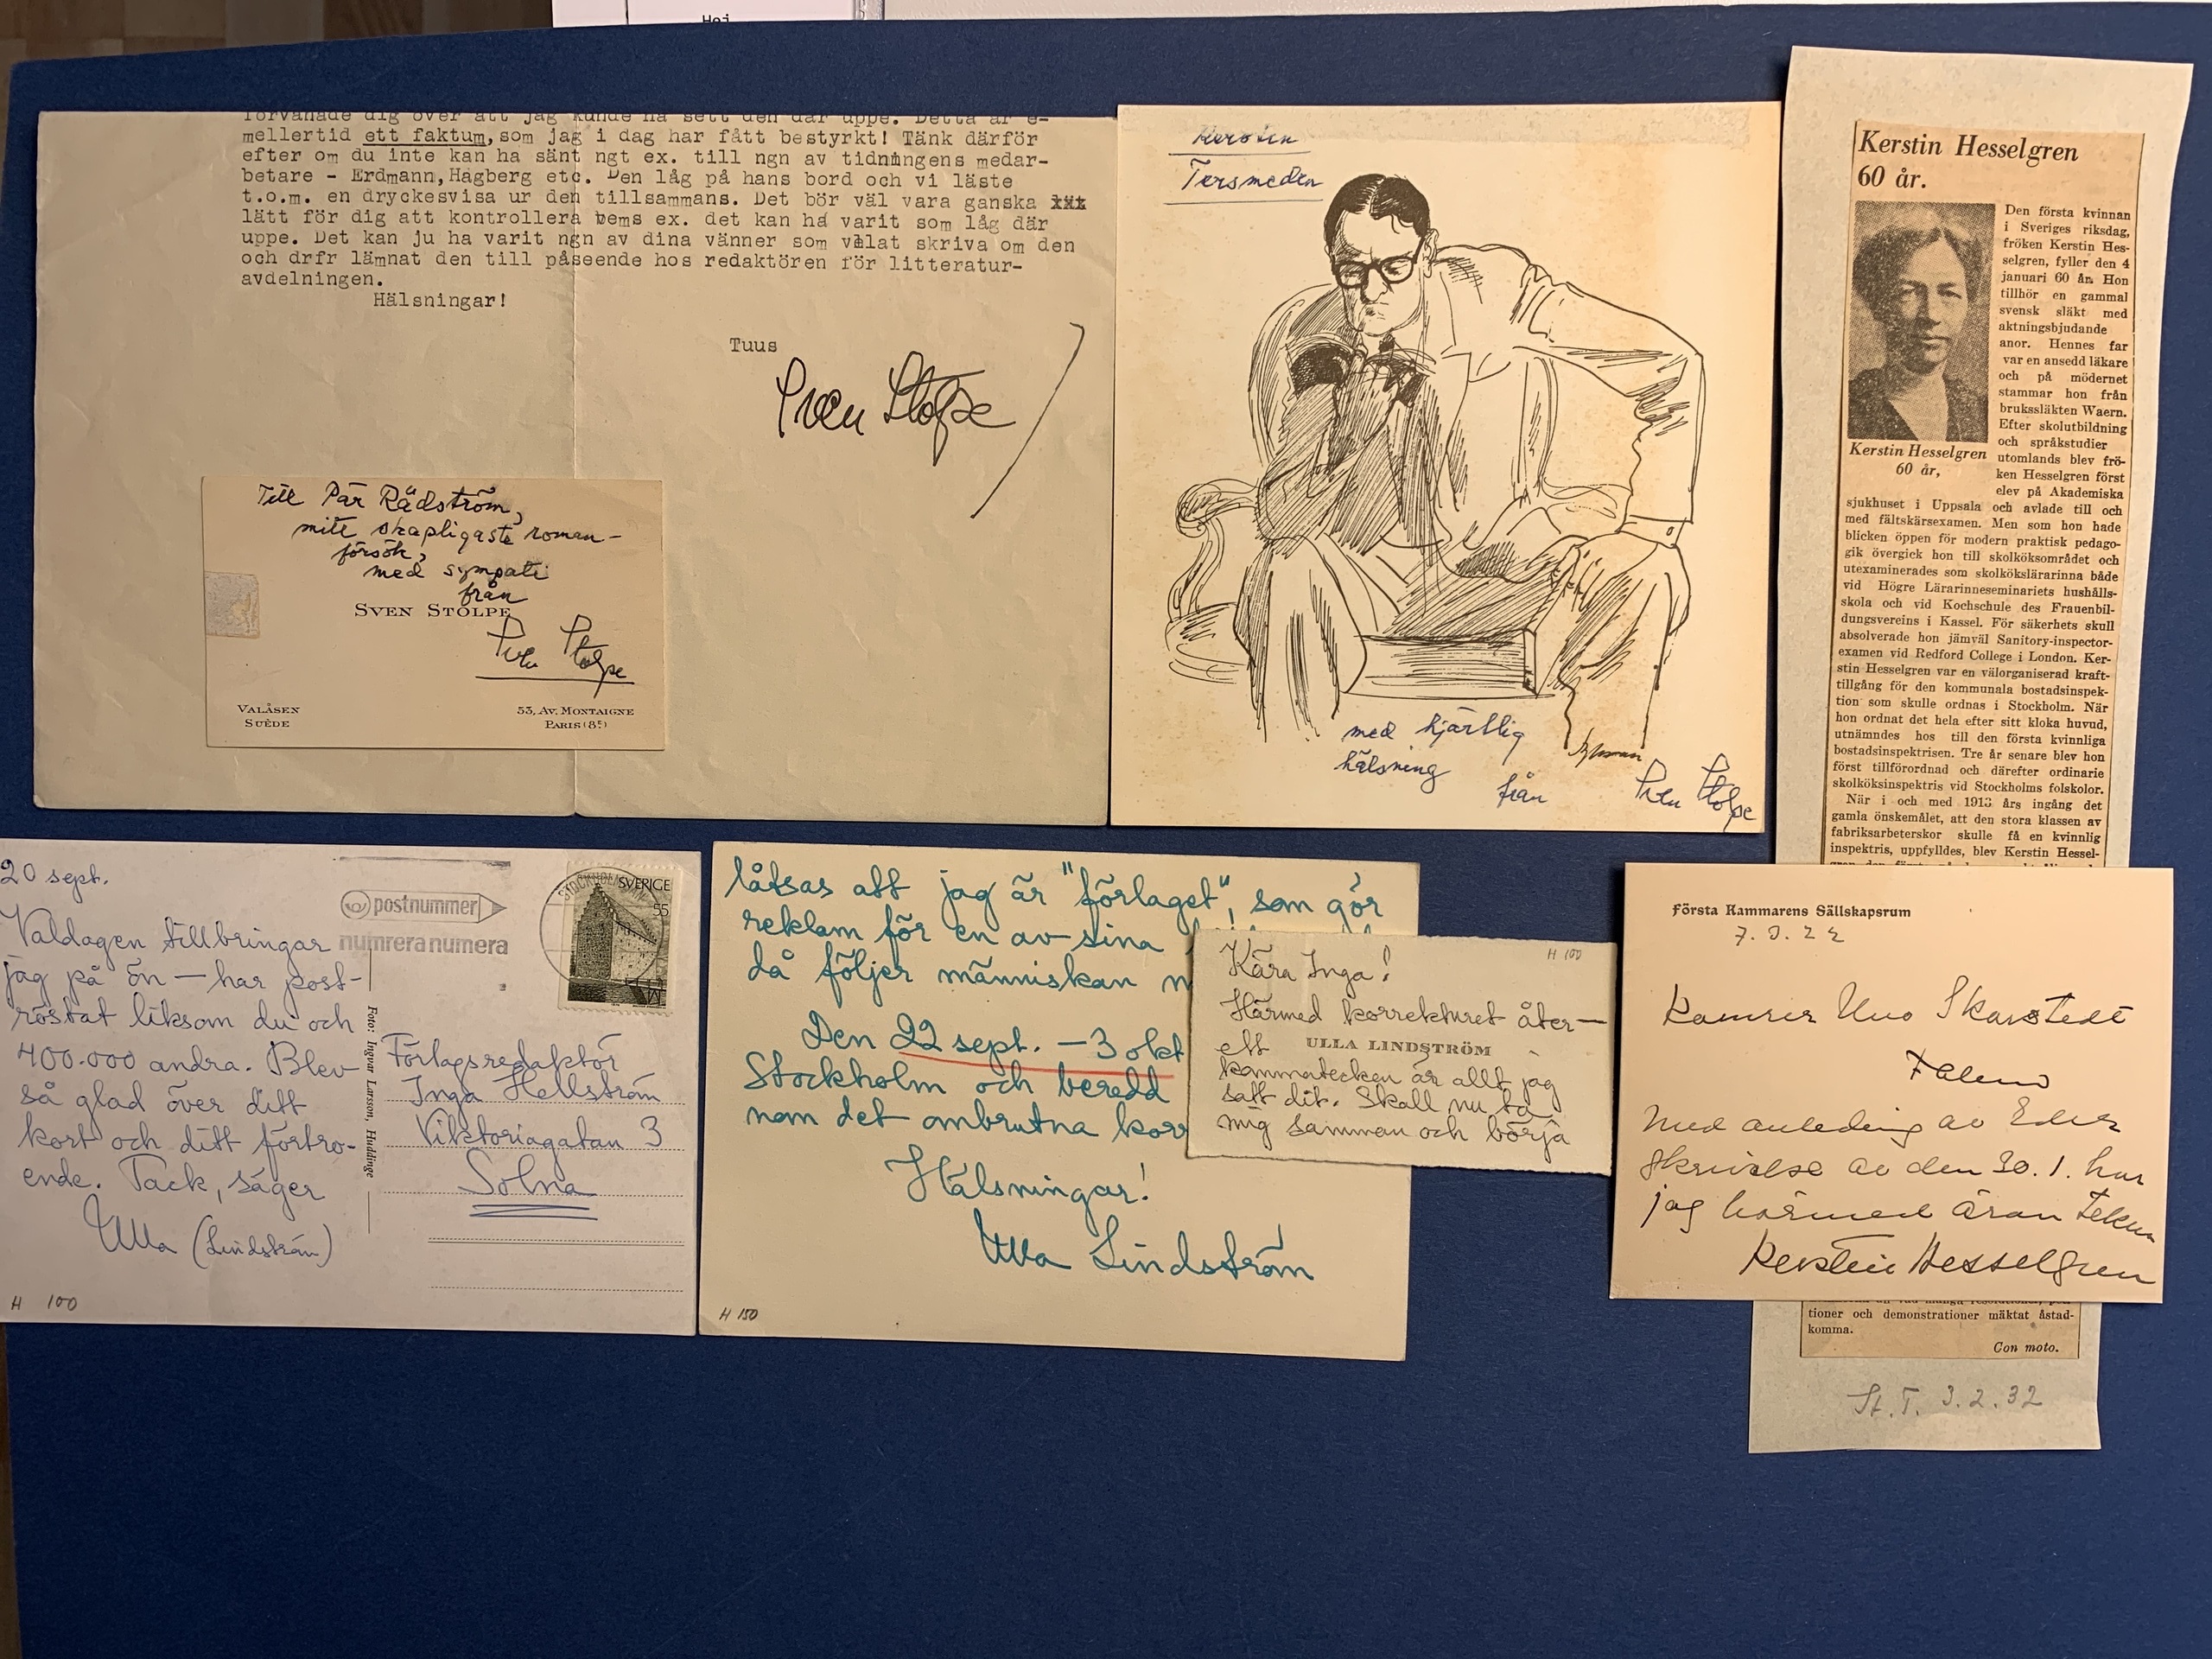 Hej
förvånade dig över att jag kunde ha sett den där uppe. Detta är e-
mellertid ett faktum, som jag i dag har fått bestyrkt! Tänk därför
efter om du inte kan ha sänt ngt ex. till ngn av tidningens medar-
betare - Erdmann, Hagberg etc. Den låg på hans bord och vi läste
t.o.m. en dryckesvisa ur den tillsammans. Det bör väl vara ganska xxx
lätt för dig att kontrollera vems ex. det kan ha varit som låg där
uppe. Det kan ju ha varit ngn av dina vänner som velat skriva om den
och drfr lämnat den till påseende hos redaktören för litteratur-
avdelningen.
Hälsningar!
Tuus
Sven Stolpe
Till Pär Rådström,
mitt skapligaste roman-
försök,
med sympati
från
SVEN STOLPE
Sven Stolpe
VALÅSEN
SUÈDE
53, AV. MONTAIGNE
PARIS (8E)
Kerstin
Tersmeden
med hjärtlig
hälsning
från
Sven Stolpe
Kerstin Hesselgren
60 år.
Den första kvinnan
i Sveriges riksdag,
fröken Kerstin Hes-
selgren, fyller den 4
januari 60 år. Hon
tillhör en gammal
svensk släkt med
aktningsbjudande
anor. Hennes far
var en ansedd läkare
och på mödernet
stammar hon från
brukssläkten Waern.
Efter skolutbildning
och språkstudier
utomlands blev frö-
ken Hesselgren först
elev på Akademiska
Kerstin Hesselgren
60 år,
sjukhuset i Uppsala och avlade till och
med fältskärsexamen. Men som hon hade
blicken öppen för modern praktisk pedago-
gik övergick hon till skolköksområdet och
utexaminerades som skolkökslärarinna både
vid Högre Lärarinneseminariets hushålls-
skola och vid Kochschule des Frauenbil-
dungsvereins i Kassel. För säkerhets skull
absolverade hon jämväl Sanitory-inspector-
examen vid Redford College i London. Ker-
stin Hesselgren var en välorganiserad kraft-
tillgång för den kommunala bostadsinspek-
tion som skulle ordnas i Stockholm. När
hon ordnat det hela efter sitt kloka huvud,
utnämndes hos till den första kvinnliga
bostadsinspektrisen. Tre år senare blev hon
först tillförordnad och därefter ordinarie
skolköksinspektris vid Stockholms folskolor.
När i och med 1913 års ingång det
gamla önskemålet, att den stora klassen av
fabriksarbeterskor skulle få en kvinnlig
inspektris, uppfylldes, blev Kerstin Hessel-
tioner och demonstrationer mäktat åstad-
komma.
Con moto.
St. T. 3.2.32
20 sept.
Valdagen tillbringar
jag på ön — har post-
röstat liksom du och
400.000 andra. Blev
så glad över ditt
kort och ditt förtro-
ende. Tack, säger
Ulla (Lindström)
H 100
postnummer
numrera numera
STOCKHOLM
SVERIGE
55
Foto: Ingvar Larsson, Huddinge
Förlagsredaktör
Inga Hellström
Viktoriagatan 3
Solna
låtsas att jag är "förlaget", som gör
reklam för en av sina
då följer människan
Den 22 sept. – 3 okt
Stockholm och beredd
nom det ombrutna korr
Hälsningar!
Ulla Lindström
H 150
H 100
Kära Inga!
Härmed korrekturet åter —
ett
ULLA LINDSTRÖM
kommatecken är allt jag
satt dit. Skall nu ta
mig samman och börja
Första Kammarens Sällskapsrum
7.3.22
Kamrer Uno Skarstedt
Falun
Med anledning av Eder
skrivelse av den 30.1. har
jag härmed äran
Kerstin Hesselgren